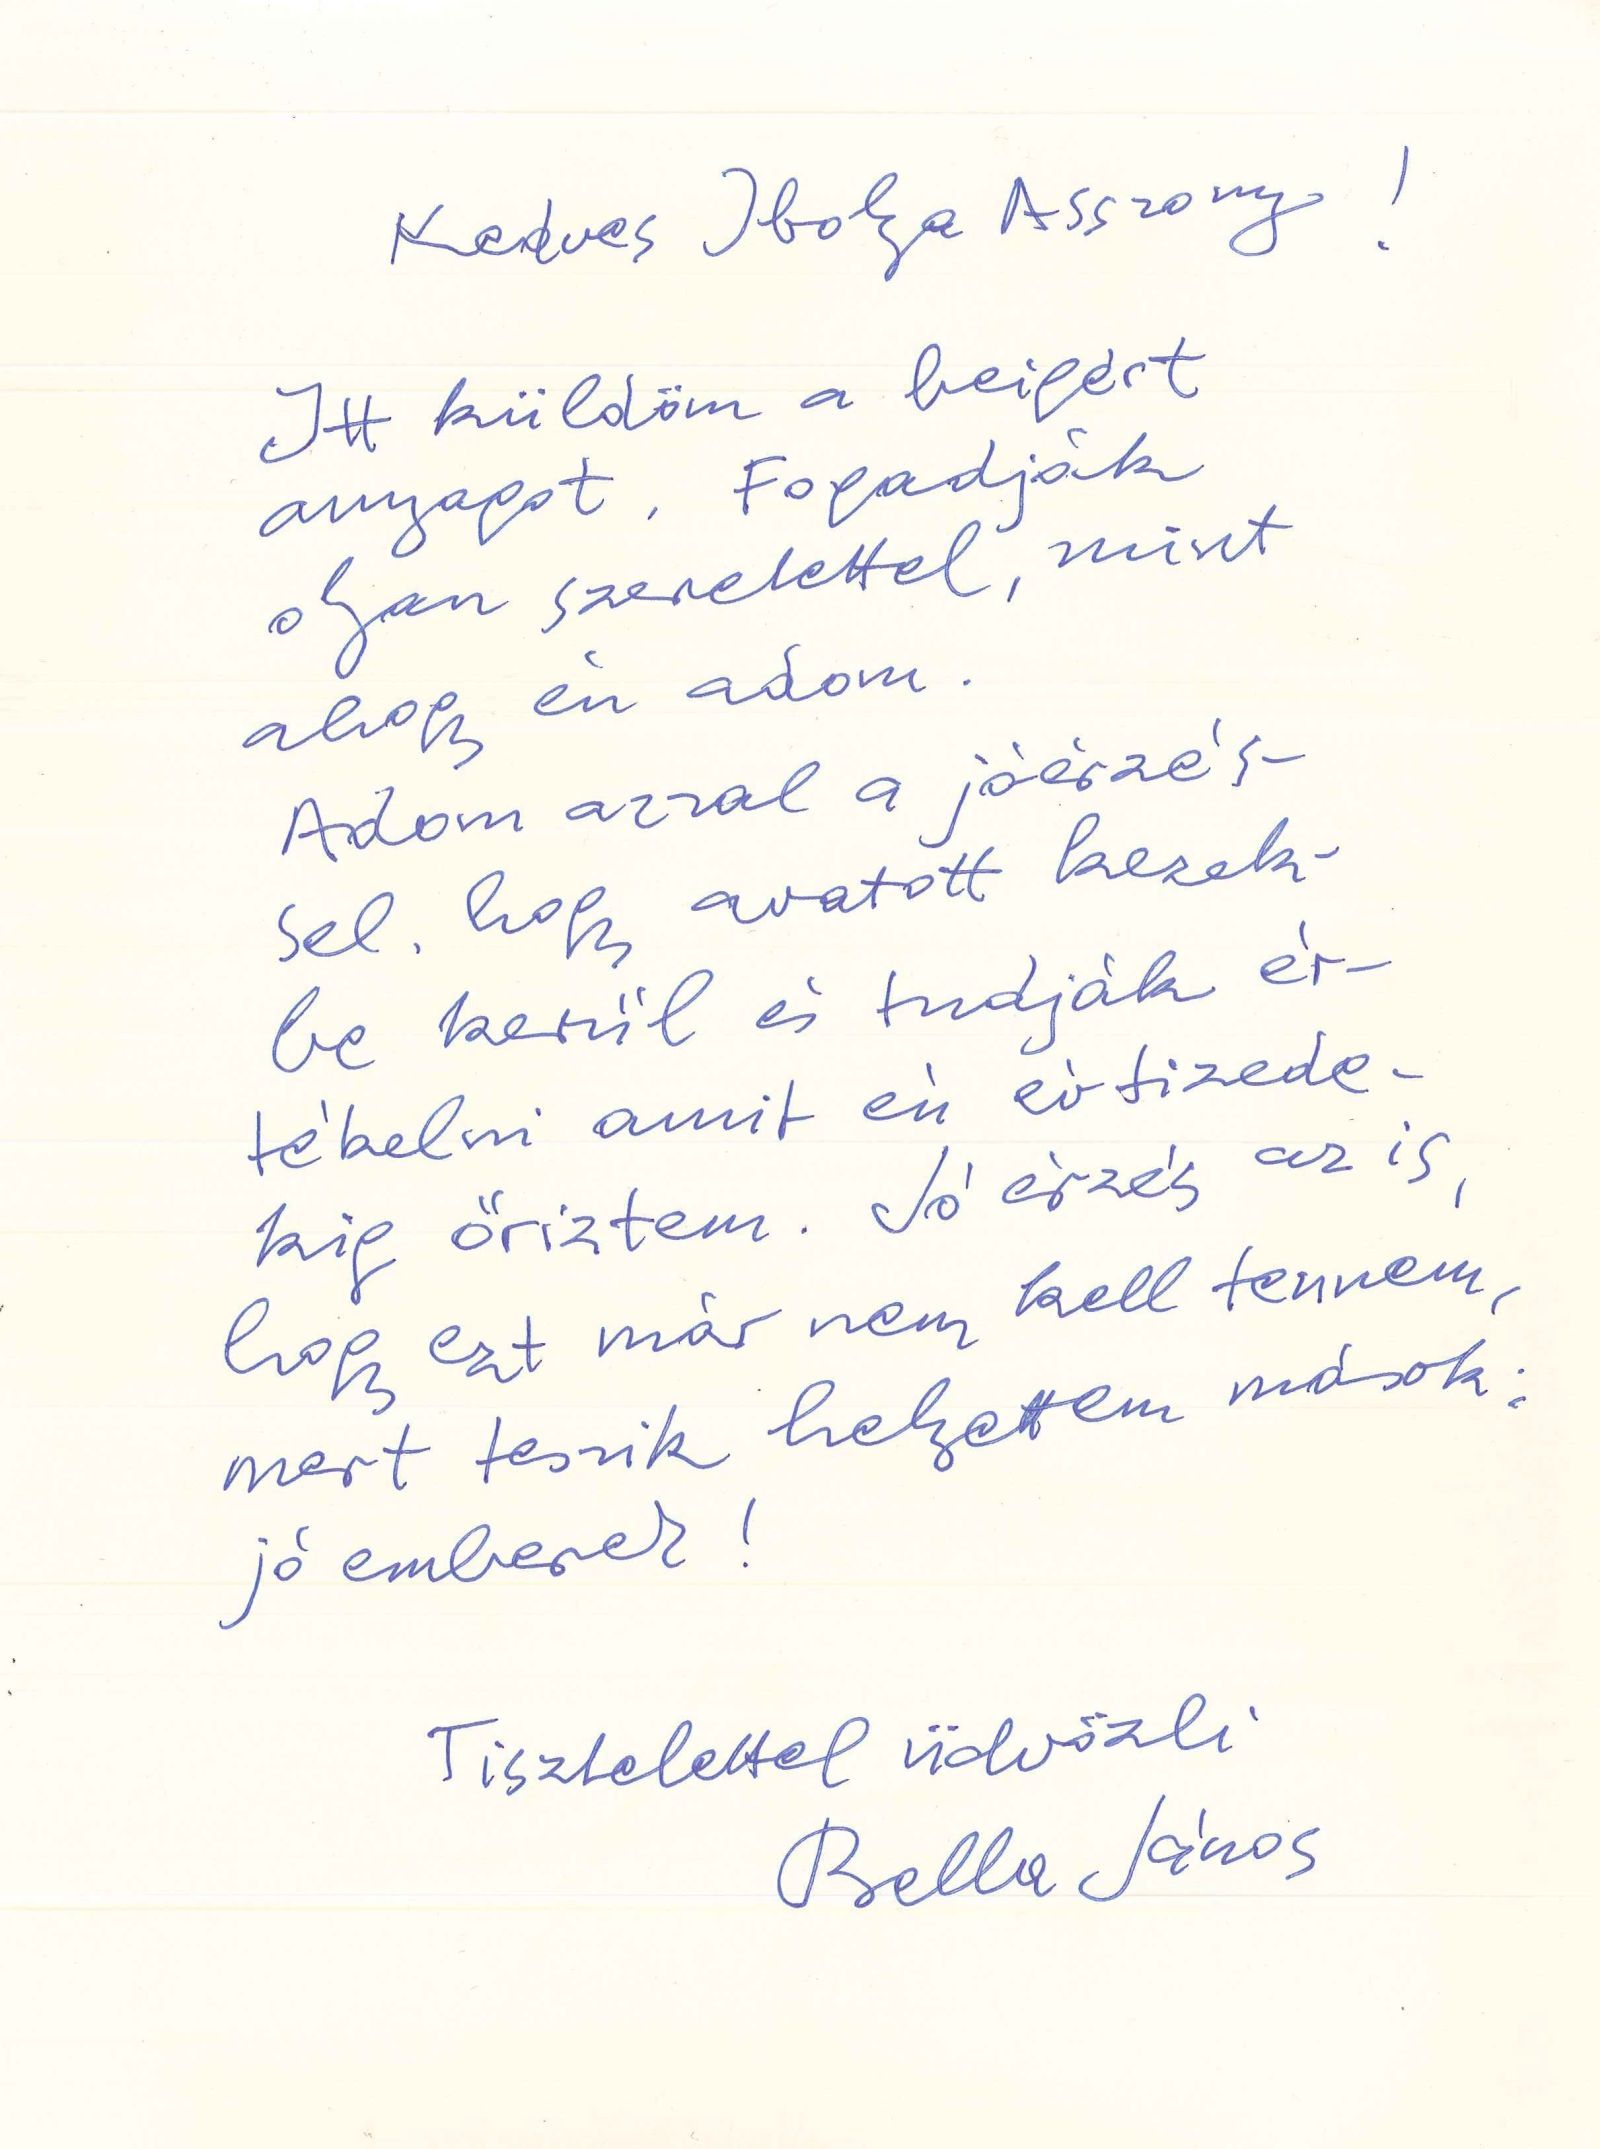 Kedves Ibolya Asszony!
Itt küldöm a beigért
anyagot. Fogadják
olyan szeretettel, mint
ahogy én adom.
Adom azzal a jóérzés-
sel, hogy avatott kezek-
be kerül és tudják ér-
tékelni amit én évtizede-
kig őriztem. Jó érzés az is,
hogy ezt már nem kell tennem,
mert teszik helyettem mások:
jó emberek!
Tisztelettel üdvözli
Bella János